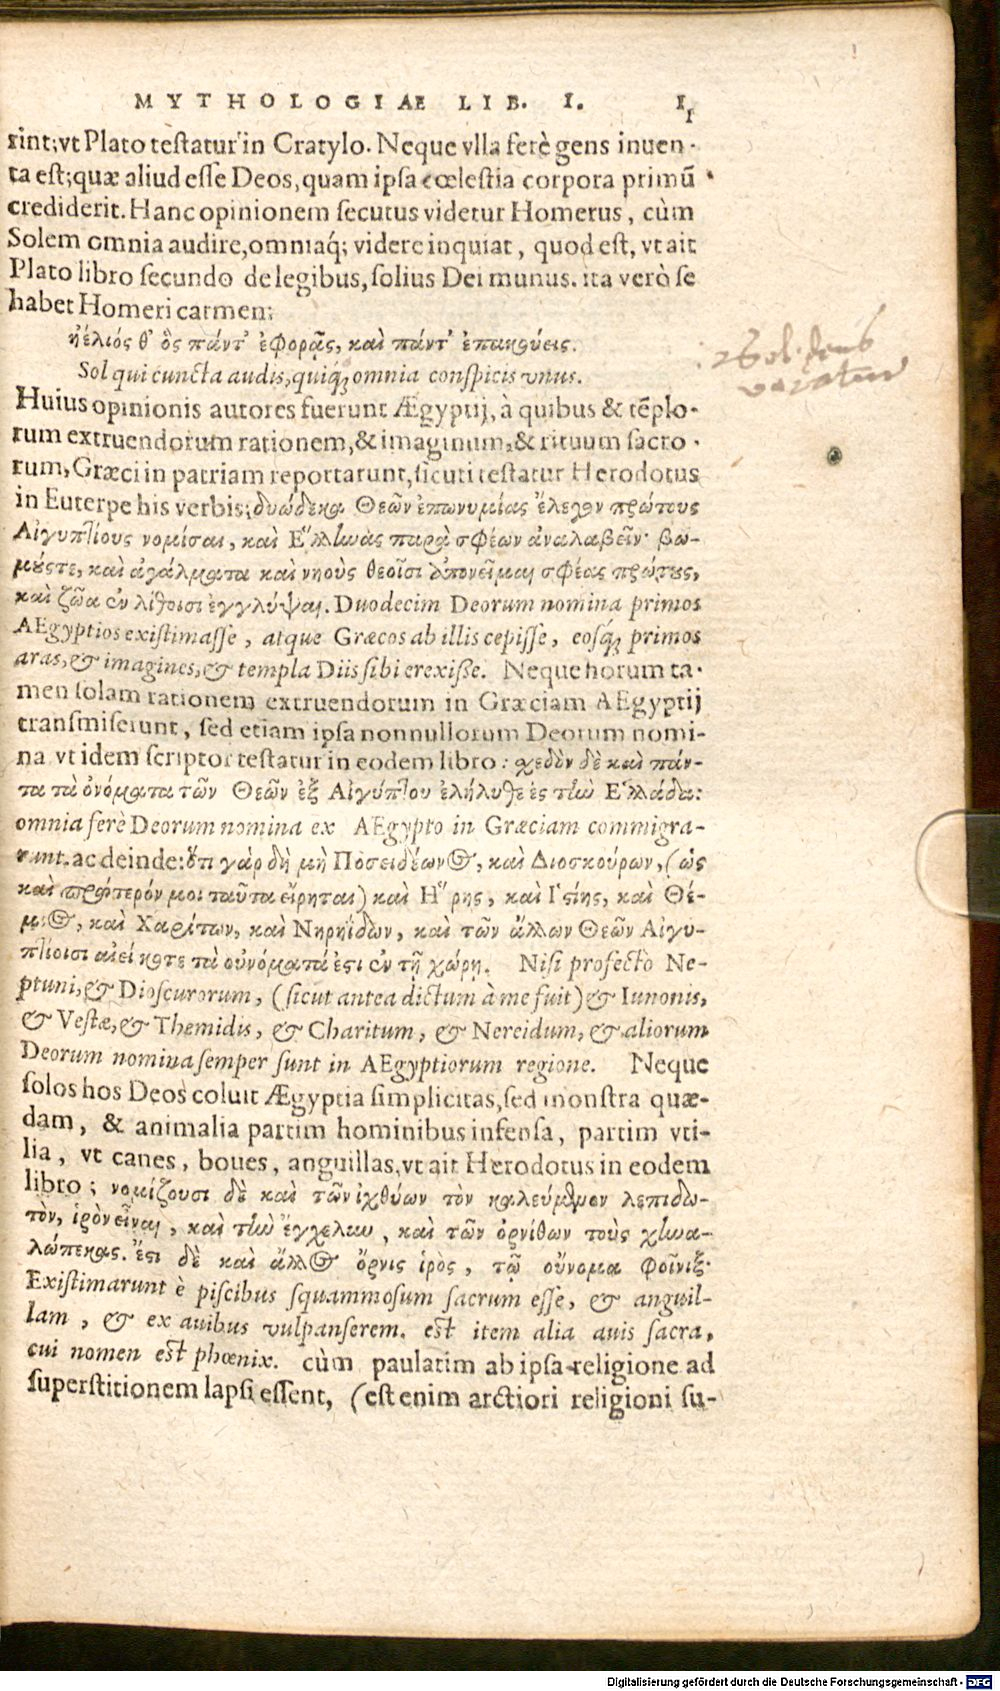 MYTHOLOGIÆ LIB. I. 11
rint; vt Plato testatur in Cratylo. Neque vlla ferè gens inuen-
ta est; quæ aliud esse Deos, quam ipsa cœlestia corpora primũ
crediderit. Hanc opinionem secutus videtur Homerus, cùm
Solem omnia audire, omniaq́; videre inquiat, quod est, vt ait
Plato libro secundo de legibus, solius Dei munus. ita verò se
habet Homeri carmen:
ἠέλιός θ' ὃς πάντ' ἐφορᾷς, καὶ πάντ' ἐπακούεις.
Sol qui cuncta audis, quiq́; omnia conspicis vnus.
Sol deus
vocatur
Huius opinionis autores fuerunt Ægyptij, à quibus & tẽplo-
rum extruendorum rationem, & imaginum, & rituum sacro-
rum, Græci in patriam reportarunt, sicuti testatur Herodotus
in Euterpe his verbis; δυώδεκα Θεῶν ἐπωνυμίας ἔλεγον πρώτους
Αἰγυπτίους νομίσαι, καὶ Ἕλλωὰς παρὰ σφέων ἀναλαβεῖν· βω-
μούς τε, καὶ ἀγάλματα καὶ νηοὺς θεοῖσι ἀπονεῖμαι σφέας πρώτους,
καὶ ζῶα ἐν λίθοισι ἐγγλύψαι. Duodecim Deorum nomina primos
AEgyptios existimasse, atque Græcos ab illis cepisse, eosq́; primos
aras, & imagines, & templa Diis sibi erexisse. Neque horum ta-
men solam rationem extruendorum in Græciam AEgyptij
transmiserunt, sed etiam ipsa nonnullorum Deorum nomi-
na vt idem scriptor testatur in eodem libro: χεδὸν δὲ καὶ πάν-
τα τὰ ὀνόματα τῶν Θεῶν ἐξ Αἰγύπτου ἐλήλυθε ἐς τὴν Ἑλλάδα:
omnia ferè Deorum nomina ex AEgypto in Græciam commigra-
runt. ac deinde: ὅτι γὰρ δὴ μὴ Ποσειδέωνος, καὶ Διοσκούρων, (ὡς
καὶ πρότερόν μοι ταῦτα εἴρηται) καὶ Ἥρης, καὶ Ἱσίης, καὶ Θέ-
μιος, καὶ Χαρίτων, καὶ Νηρηΐδων, καὶ τῶν ἄλλων Θεῶν Αἰγυ-
πτίοισι αἰεί κοτε τὰ οὐνόματά ἐστι ἐν τῇ χώρῃ. Nisi profectò Ne-
ptuni, & Dioscurorum, (sicut antea dictum à me fuit) & Iunonis,
& Vestæ, & Themidis, & Charitum, & Nereidum, & aliorum
Deorum nomina semper sunt in AEgyptiorum regione. Neque
solos hos Deos coluit Ægyptia simplicitas, sed monstra quæ-
dam, & animalia partim hominibus infensa, partim vti-
lia, vt canes, boues, anguillas, vt ait Herodotus in eodem
libro; νομίζουσι δὲ καὶ τῶν ἰχθύων τὸν καλεύμενον λεπιδω-
τὸν, ἱρὸν εἶναι, καὶ τὴν ἔγχελυν, καὶ τῶν ὀρνίθων τοὺς χηνα-
λώπεκας. ἔστι δὲ καὶ ἄλλος ὄρνις ἱρὸς, τῷ οὔνομα φοῖνιξ·
Existimarunt è piscibus squammosum sacrum esse, & anguil-
lam, & ex auibus vulpanserem. est item alia auis sacra,
cui nomen est phœnix. cùm paulatim ab ipsa religione ad
superstitionem lapsi essent, (est enim arctiori religioni su-
Digitalisierung gefördert durch die Deutsche Forschungsgemeinschaft - DFG